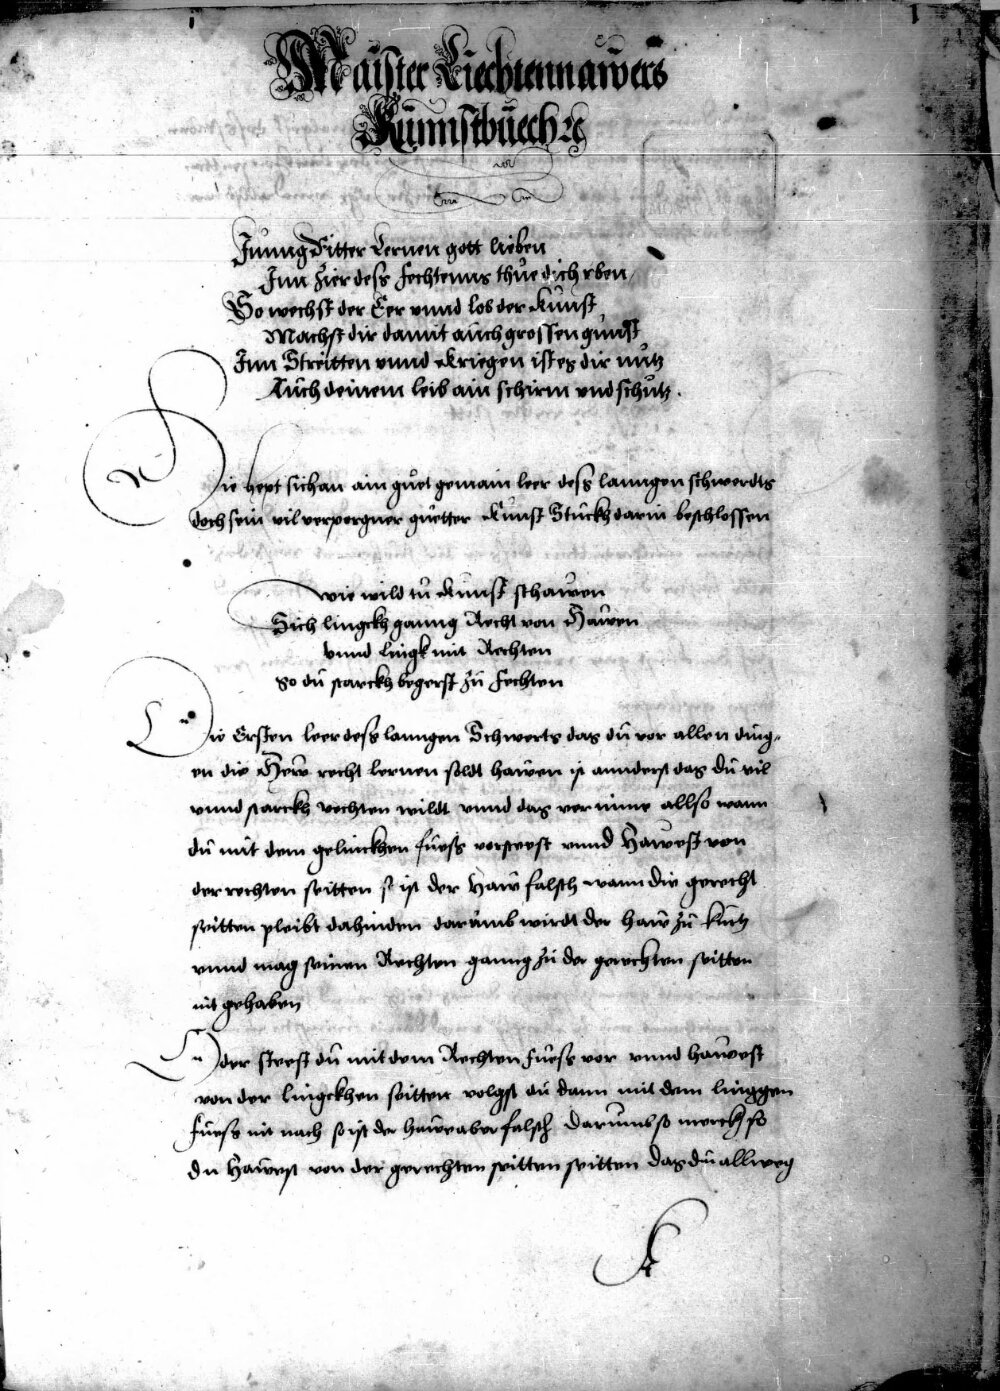 1
Maister Liechtennawers
Kunnstbuech zc
Junng Ritter Lernen gott lieben
Inn Zier dess Fechtenns thue dich yben,
So wechst der Eer unnd lob der Kunst
Machst dir damit auch grossen gunst
Inn Streitten unnd Kriegen ist es dir nutz
Auch deinem leib ain schirm und schutz.
Hie hept sich an ain guet gemain leer dess lanngen schwerdts
doch sein vil verporgner guetter Kunst Stuckh darin beschlossen
wie wild tu Kunst schawen
Sich lingckh ganng Recht von Hawen
unnd Lingk mit Rechten
so du starckh begerst zu Fechten
Die Ersten leer dess lanngen Schwerts das du vor allen ding,,
en die Hew recht lernen soldt hawen ist annderst das du vil
unnd starckh vechten wildt unnd das vernime allso wann
du mit dem gelinckhen fuess vorsteest unnd Hawest von
der rechten seitten so ist der Haw falsch wann die gerecht
seitten pleibt dahinden darumb wirdt der haw zu kurtz
unnd mag seinen Rechten ganng zu der gerechten seitten
nit gehaben
Oder steest du mit dem Rechten Fuess vor unnd hawest
von der lingckhen seitten volgst du dann mit dem linggen
fuess nit nach so ist der haw aber falsch Darumb so merckh so
du Hawest von der gerechten seitten seitten das du allweg